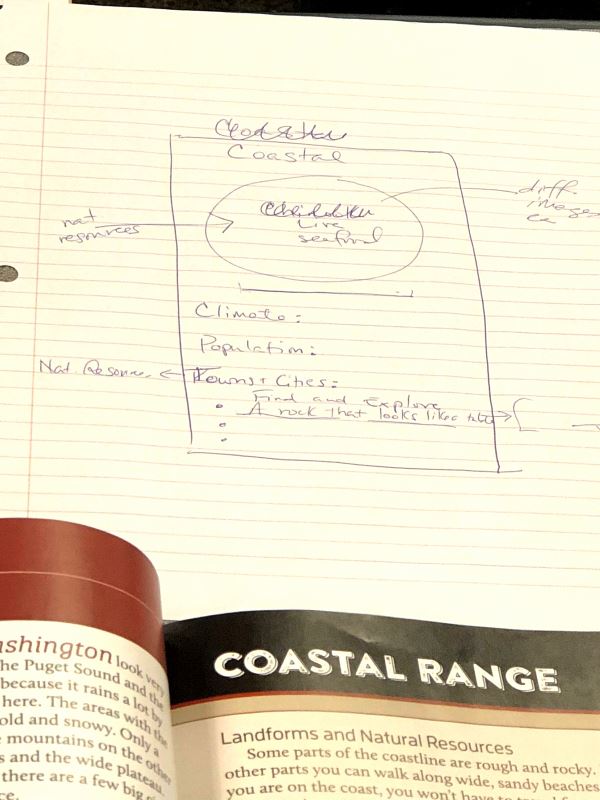 Coastal
diff.
images
ca
nat
resources
Live
seafood
Climate:
Population:
Nat. Resource
Towns + Cities:
Find and Explore
A rock that looks like a
ashington look very
he Puget Sound and the
because it rains a lot by
here. The areas with the
old and snowy. Only a
mountains on the other
s and the wide plateau.
there are a few big
ce.
COASTAL RANGE
Landforms and Natural Resources
Some parts of the coastline are rough and rocky.
other parts you can walk along wide, sandy beaches
you are on the coast, you won't have to